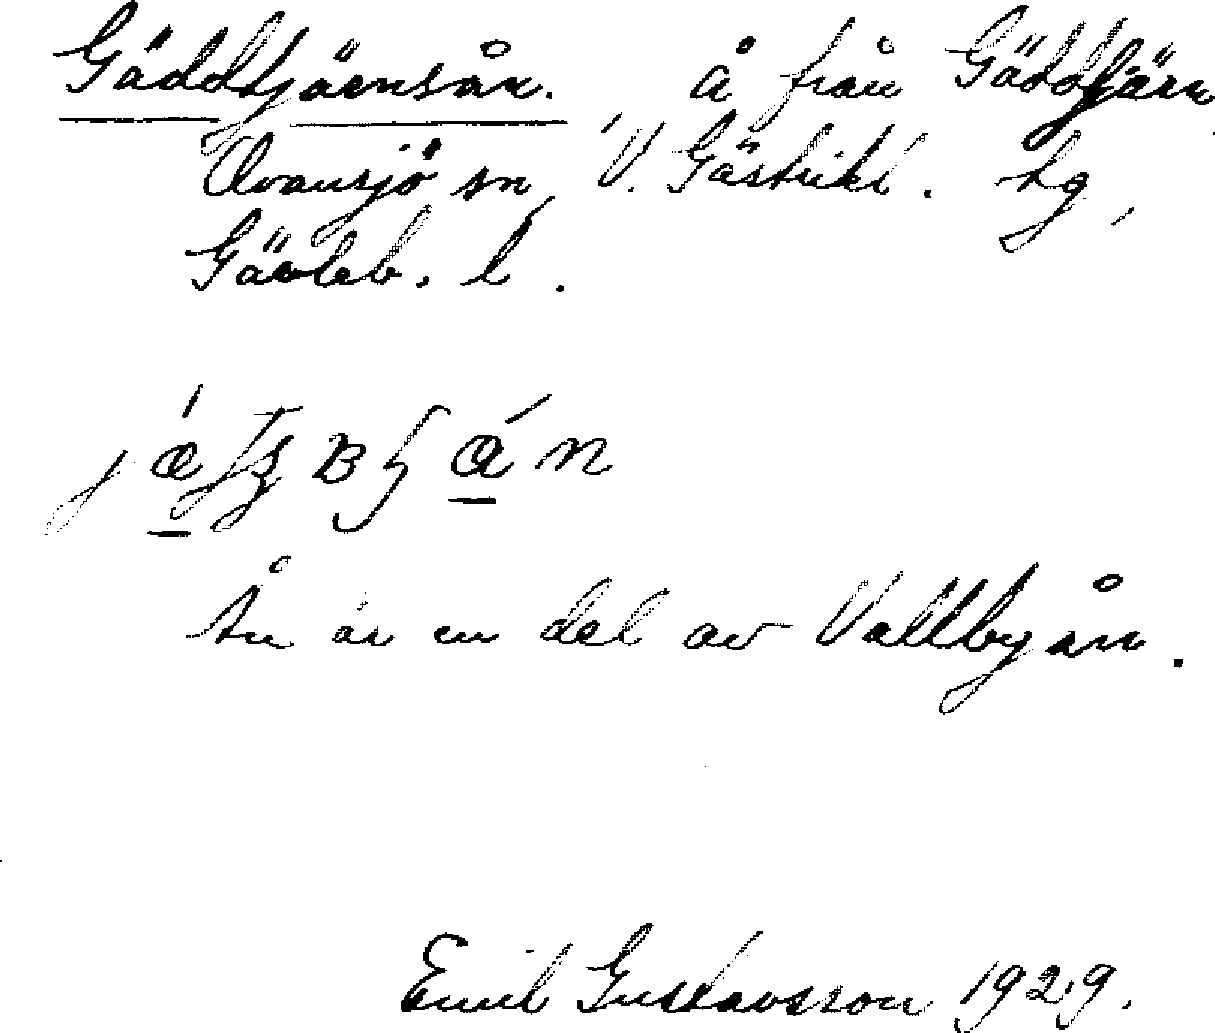 Gäddtjärnsån. å från Gäddtjärn
Ovansjö sn, V. Gästrikl. tg,
Gävleb. l.
Ån är en del av Vallbyån.
Emil Gustavsson 1929.